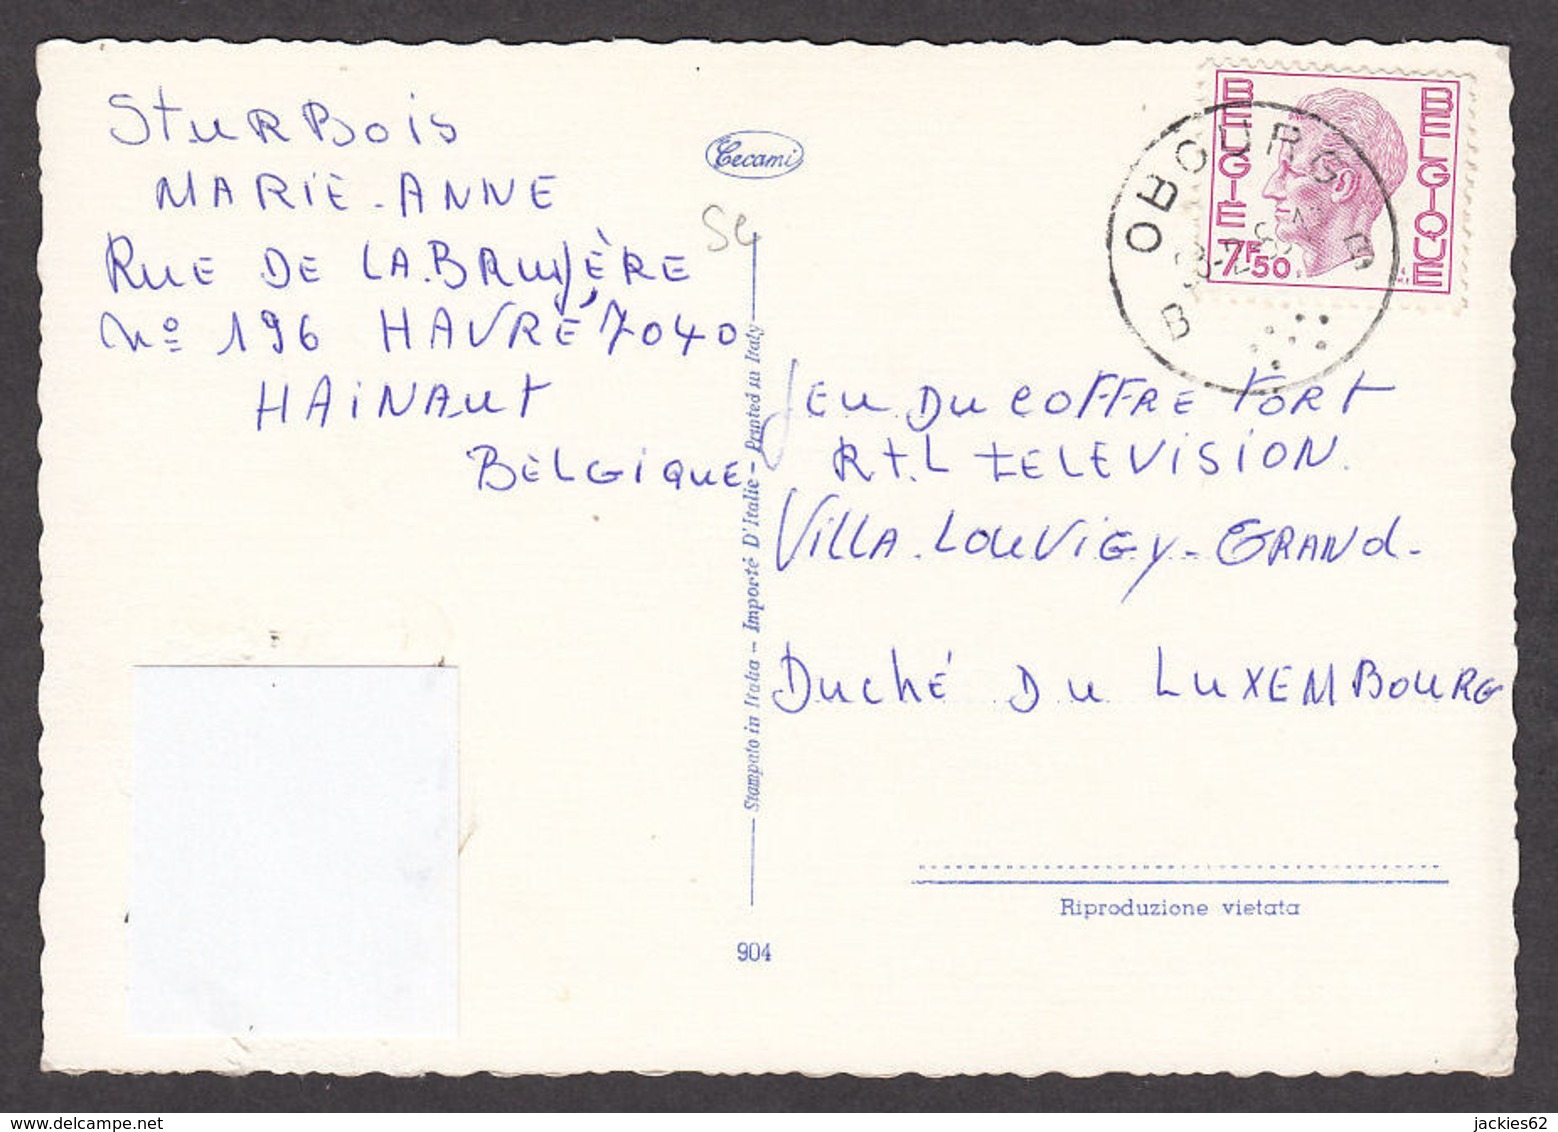 SturBois
MARIE-ANNE
RUE DE LA.BRUYÈRE
No 196 HAVRÉ 7040
HAiNAUT
BELGiQUE
Cecami
Se
Stampato in Italia - Importé D'Italie - Printed in Italy
904
BELGIE
BELGIQUE
7F50
OBOURG
B
JEU DU COFFRE FORT
R.t.L tELEVISION.
VillA.LOUVIGY-GRANd-
DUChÉ DU LUXEMBOURG
Riproduzione vietata
jackies62